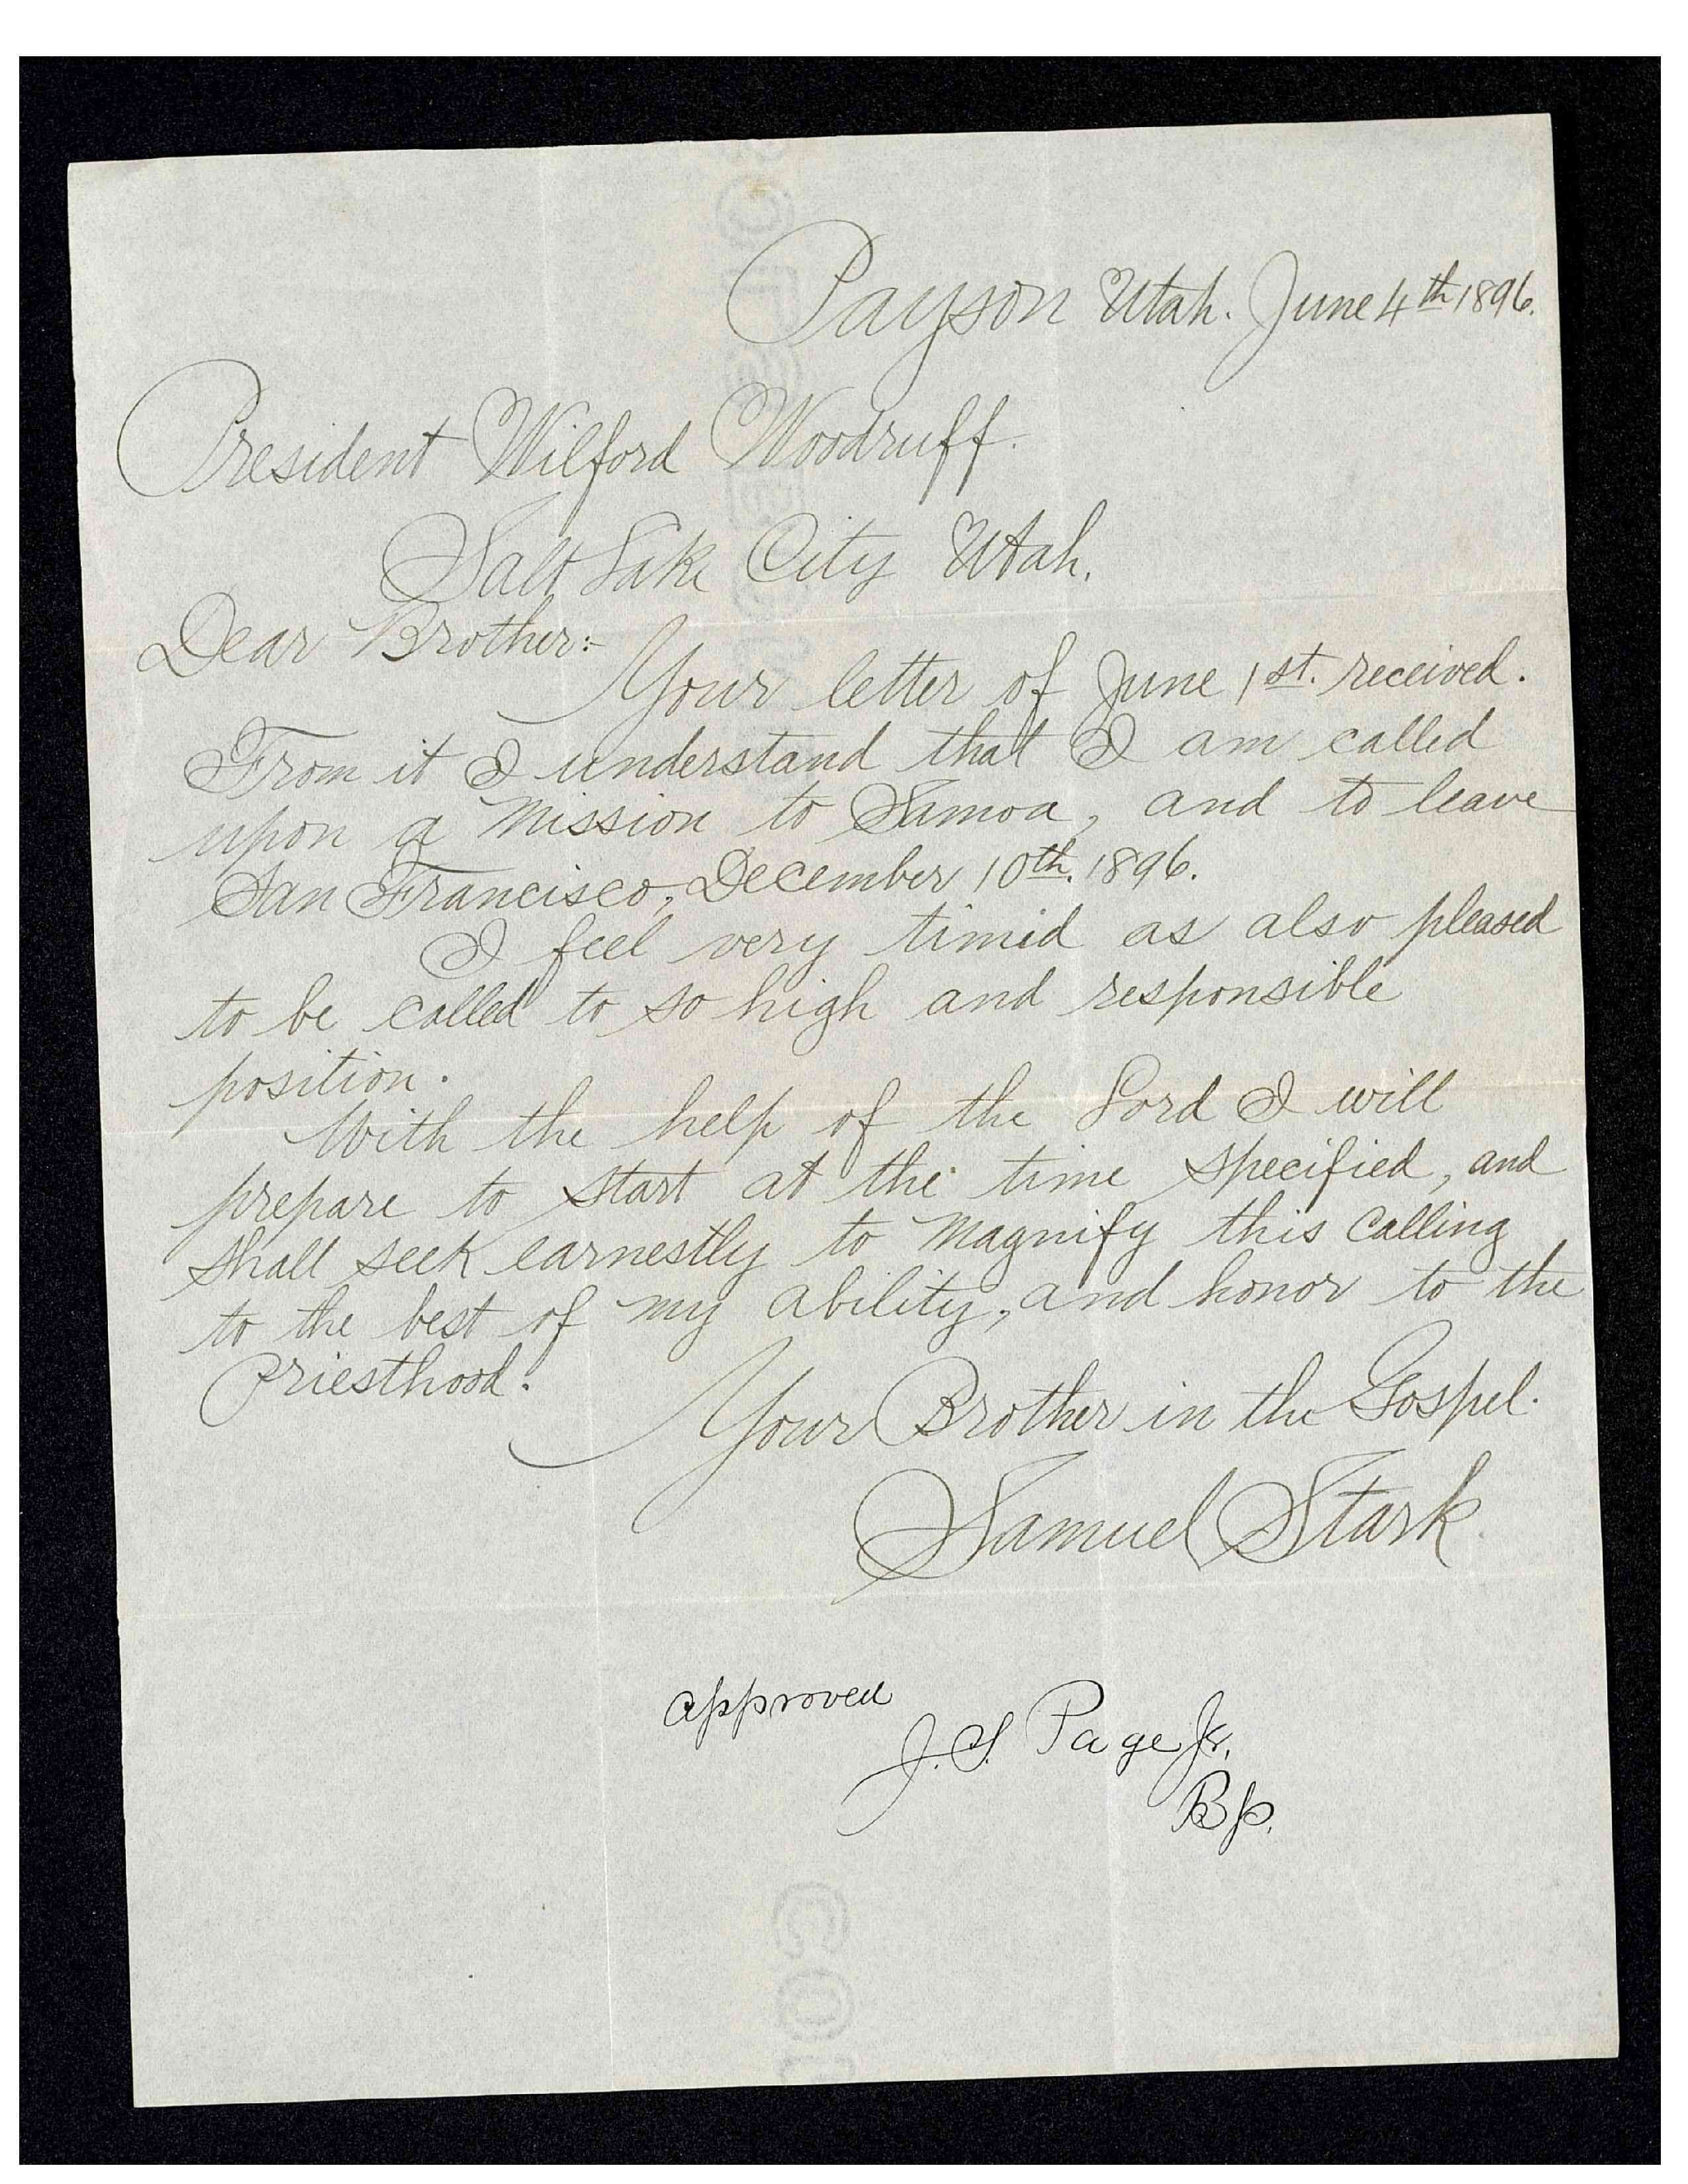 Payson Utah. June 4th 1896.
President Wilford Woodruff.
Salt Lake City Utah.
Dear Brother:-
Your letter of June 1st. received.
From it I understand that I am called
upon a mission to Samoa, and to leave
San Francisco, December 10th. 1896.
I feel very timid as also pleased
to be called to so high and responsible
position.
With the help of the Lord I will
prepare to start at the time specified, and
shall seek earnestly to magnify this calling
to the best of my ability, and honor to the
Priesthood.
Your Brother in the Gospel.
Samuel Stark.
approved
J. S. Page Jr.
Bp.